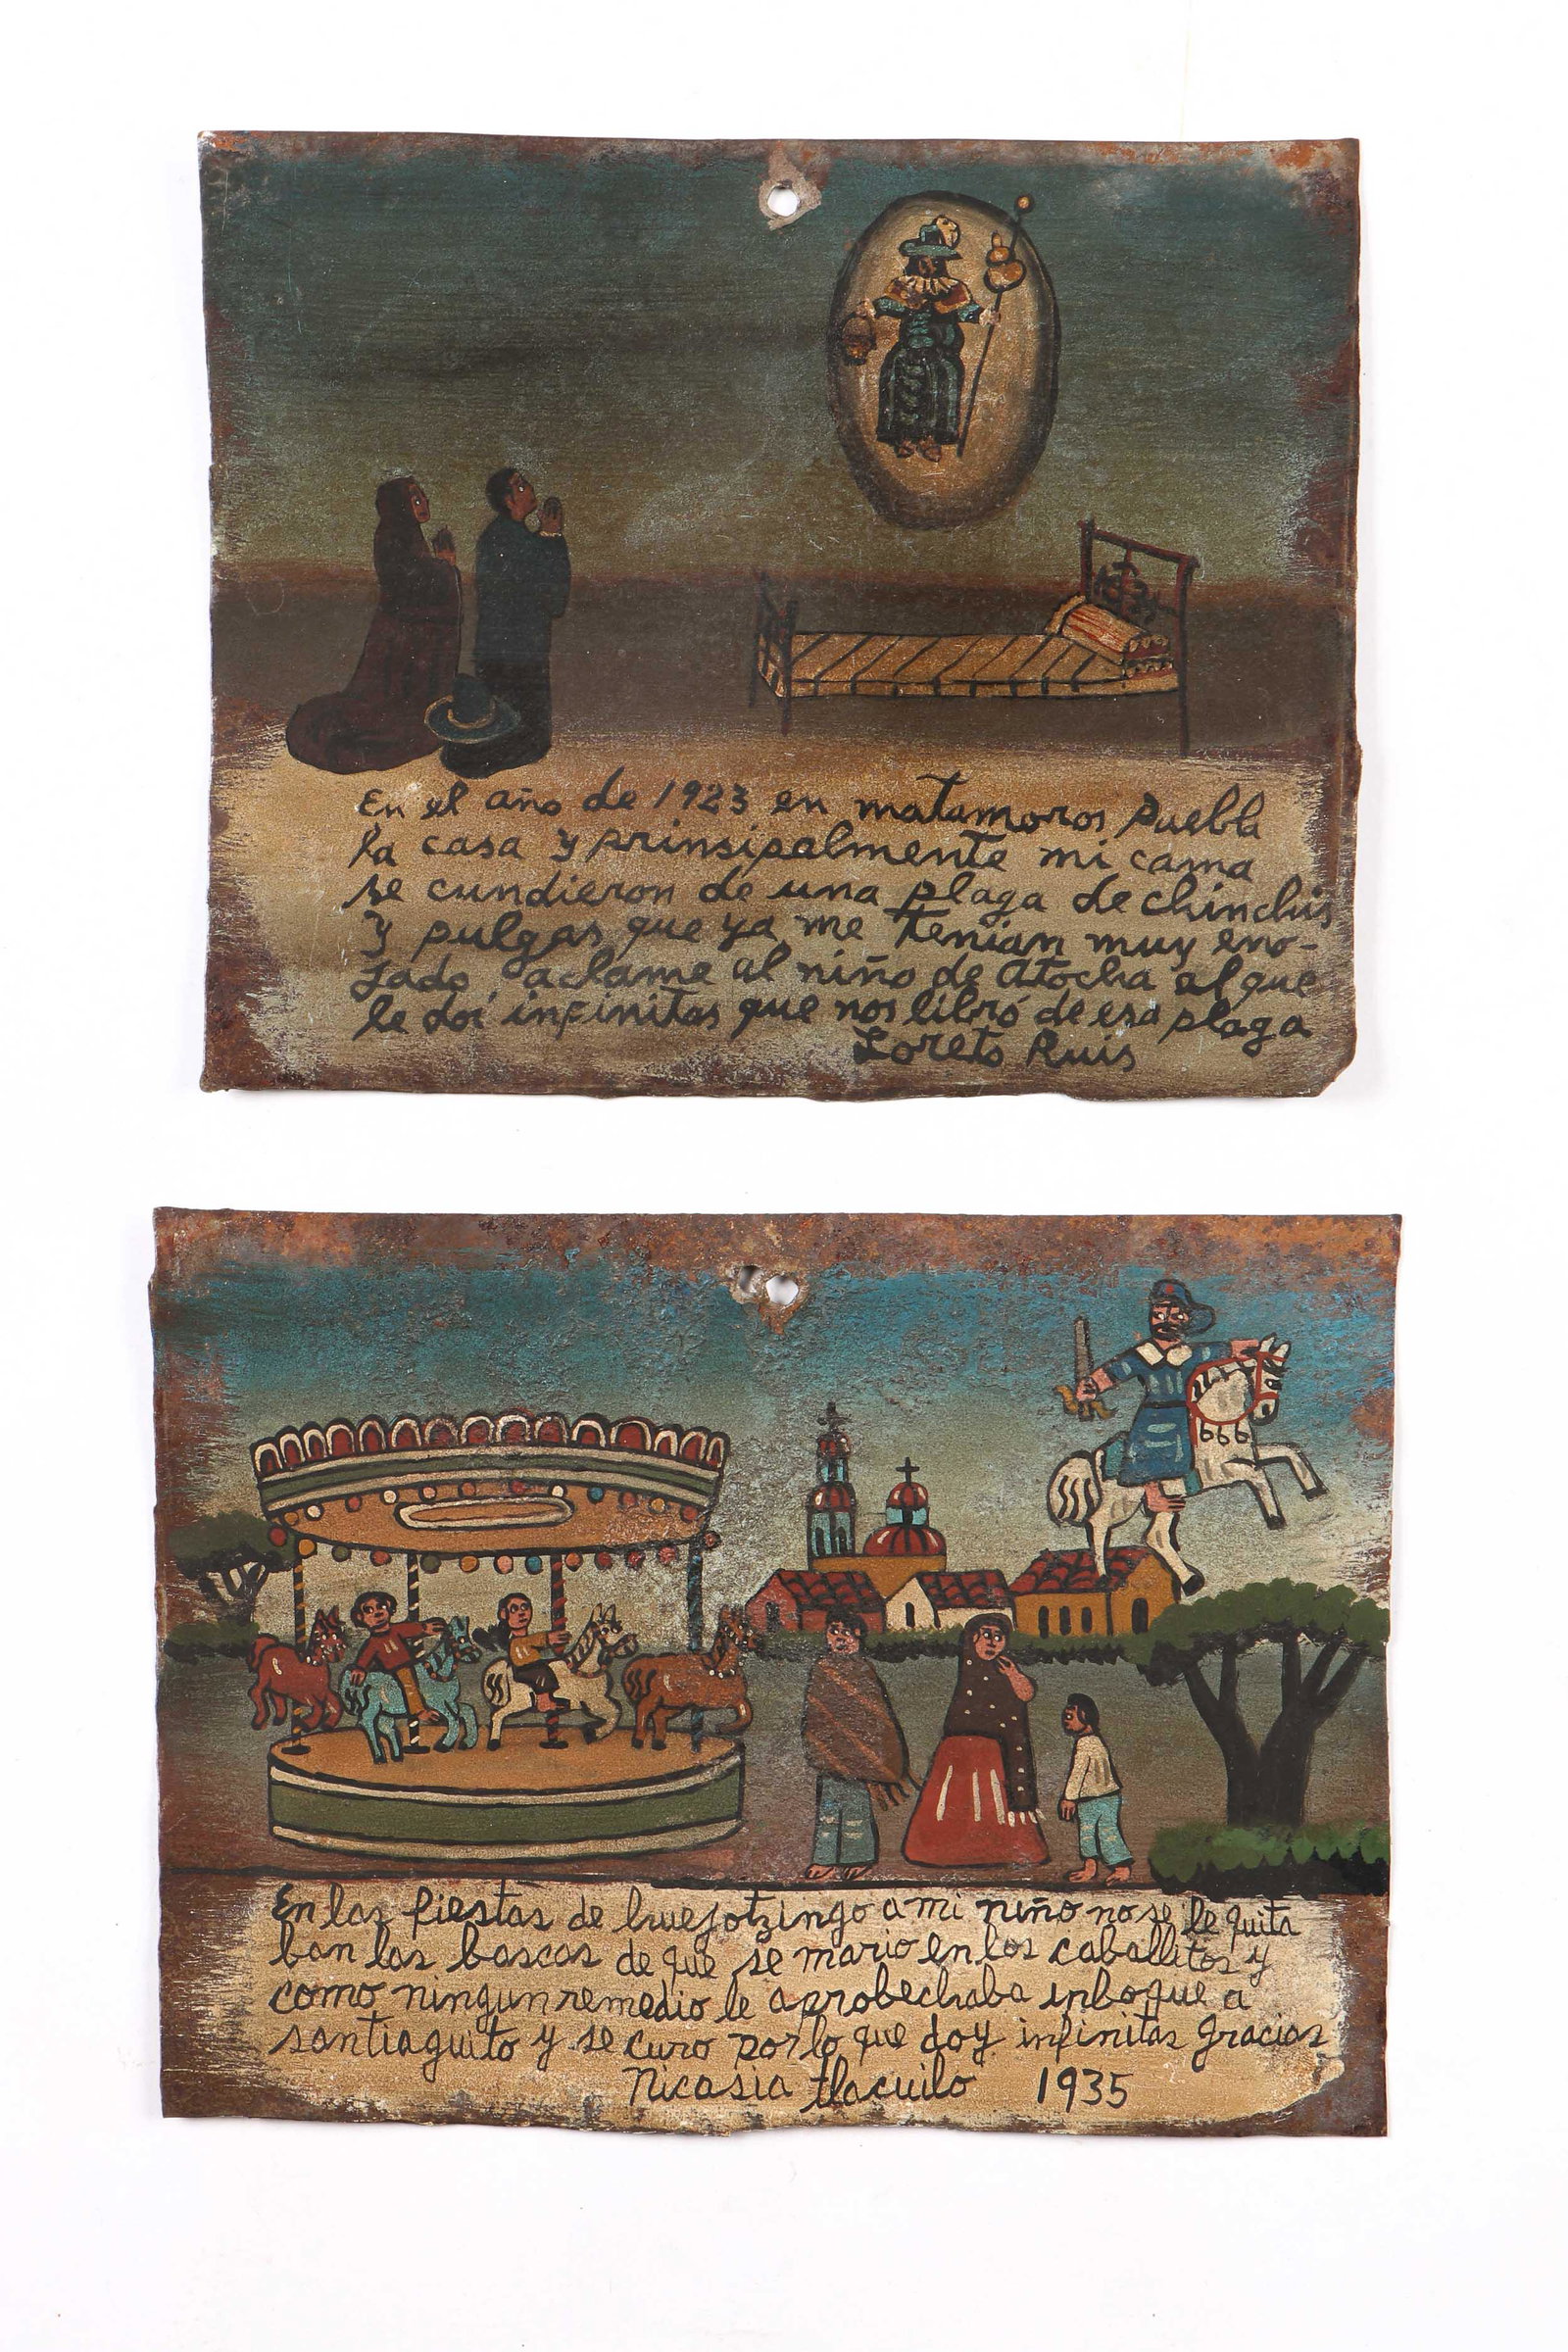 En el año de 1923 en matamoros Puebla
la casa y prinsipalmente mi cama
se cundieron de una plaga de chinchis
y pulgas que ya me tenian muy eno-
jado aclame al niño de Atocha al que
le doi infinitas que nos libró de esa plaga
Loreto Ruis
En las fiestas de huejotzingo a mi niño no se le quita
ban las bascas de que se mario en los caballitos y
como ningun remedio le aprobechaba inboque a
santiaguito y se curo por lo que doy infinitas gracias
Nicasia tlacuilo 1935